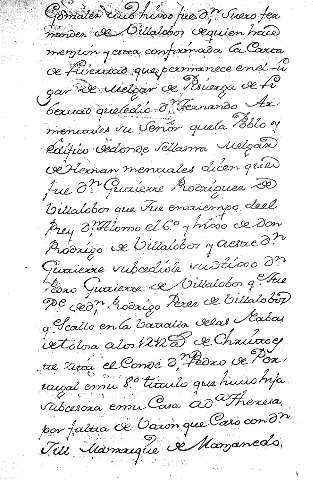 Gonzalez cuio hixo fue dn. Suero fer
nandez de Villalobos de quien hace
mencion y esta confirmada la Carta
de livertad que permanece en el lu
gar de Melgar de Pisuerga de li
bertad que le dio dn. Fernando Ar
mentales su Señor que la Poblo y
edifico de donde se llama Melgar
de Hernan mentales dicen que
fue dn Gutierre Rodriguez de
Villalobos que fue en tiempo de el
Rey dn Alonso el 6º y hixo de don
Rodrigo de Villalobos y a este dn
Gutierre subcediole su hixo dn
Pedro Gutierrez de Villalobos qe. fue
Pe. de dn. Rodrigo Perez de Villalobos
q se allo en la vatalla de las Nabas
de tolosa año 1212 de Christo es
te zita el Conde dn Pedro de Por
tugal en su 8º titulo que huvo hija
subcesora en su Casa a Da Theresa
por faltta de Varon que Caso con dn
Jill Manrrique de Manzanedo,